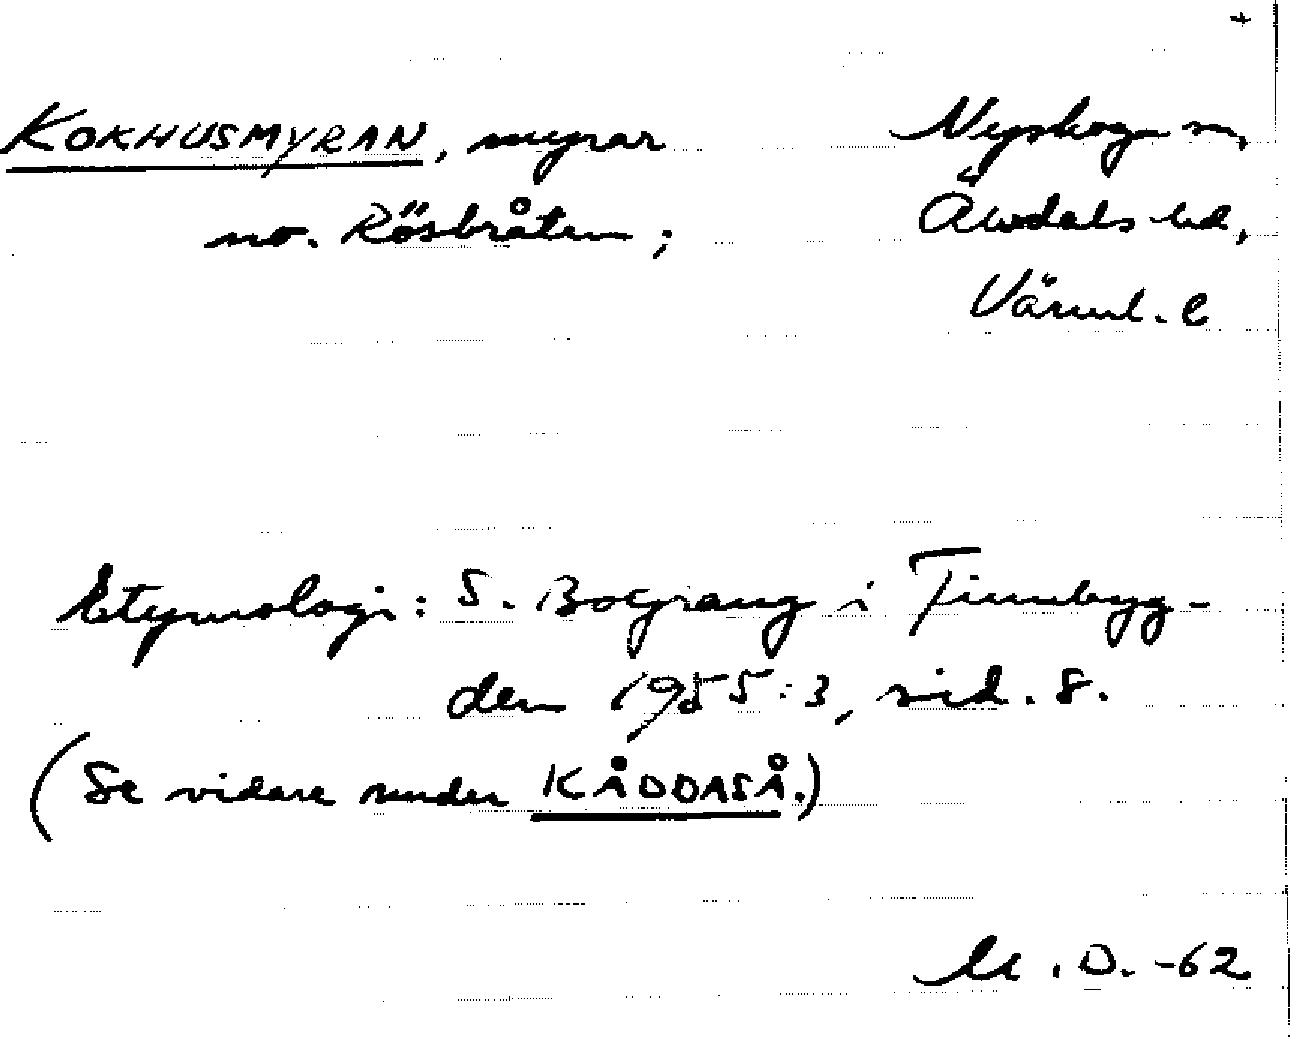 +
KOKHUSMYRAN, myrar Nyskoga sn,
no. Rösbråten; Älvdals hd,
Värml. l
Etymologi: S. Bograng i Finnbyg-
den 1955:3, sid. 8.
(Se vidare under KÅDDASÅ.)
M.D. -62